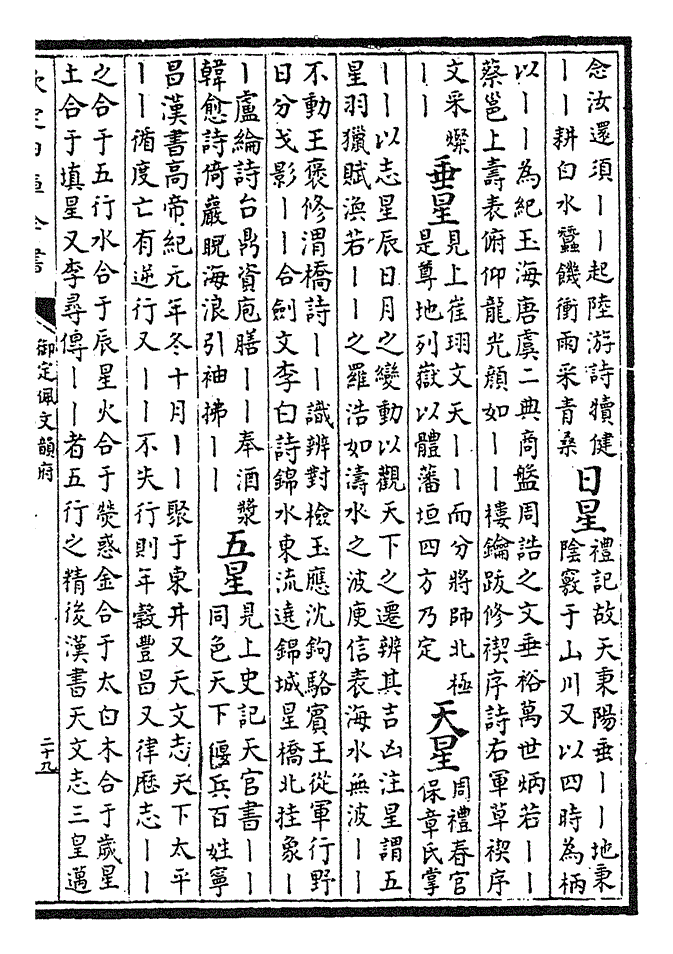 念汝還須丨丨起陸游詩犢健
丨丨耕白水蠶饑衝雨采青桑
日星
禮記故天秉陽垂丨丨地秉
陰竅于山川又以四時為柄
以丨丨為紀玉海唐虞二典商盤周誥之文垂裕萬世炳若丨丨
蔡邕上壽表俯仰龍光顔如丨丨樓鑰跋修禊序詩右軍草禊序
文采燦
丨丨
垂星
見上崔珝文天丨丨而分將師北極
是尊地列嶽以體藩垣四方乃定
天星
周禮春官
保章氏掌
丨丨以志星辰日月之變動以觀天下之遷辨其吉凶注星謂五
星羽獵賦渙若丨丨之羅浩如濤水之波庾信表海水無波丨丨
不動王褒修渭橋詩丨丨識辨對檢玉應沈鉤駱賓王從軍行野
日分戈影丨丨合劍文李白詩錦水東流遶錦城星橋北挂象丨
丨盧綸詩台鼎資庖膳丨丨奉酒漿
韓愈詩倚巖睨海浪引袖拂丨丨
五星
見上史記天官書丨丨
同色天下偃兵百姓寧
昌漢書高帝紀元年冬十月丨丨聚于東井又天文志天下太平
丨丨循度亡有逆行又丨丨不失行則年穀豐昌又律歴志丨丨
之合于五行水合于辰星火合于熒惑金合于太白木合于歳星
土合于填星又李尋傳丨丨者五行之精後漢書天文志三皇邁
欽定四庫全書
御定佩文韻府
二十九